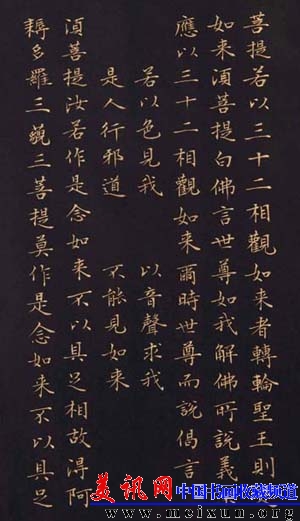 菩提若以三十二相觀如来者轉輪聖王則
如来湏菩提白佛言世尊如我解佛所說義
應以三十二相觀如来爾時世尊而說偈言
若以色見我　以音聲求我
是人行邪道　不能見如来
湏菩提汝若作是念如来不以具足相故得阿
耨多羅三藐三菩提莫作是念如来不以具足
美讯网 中国书画收藏频道
www.meixun.org